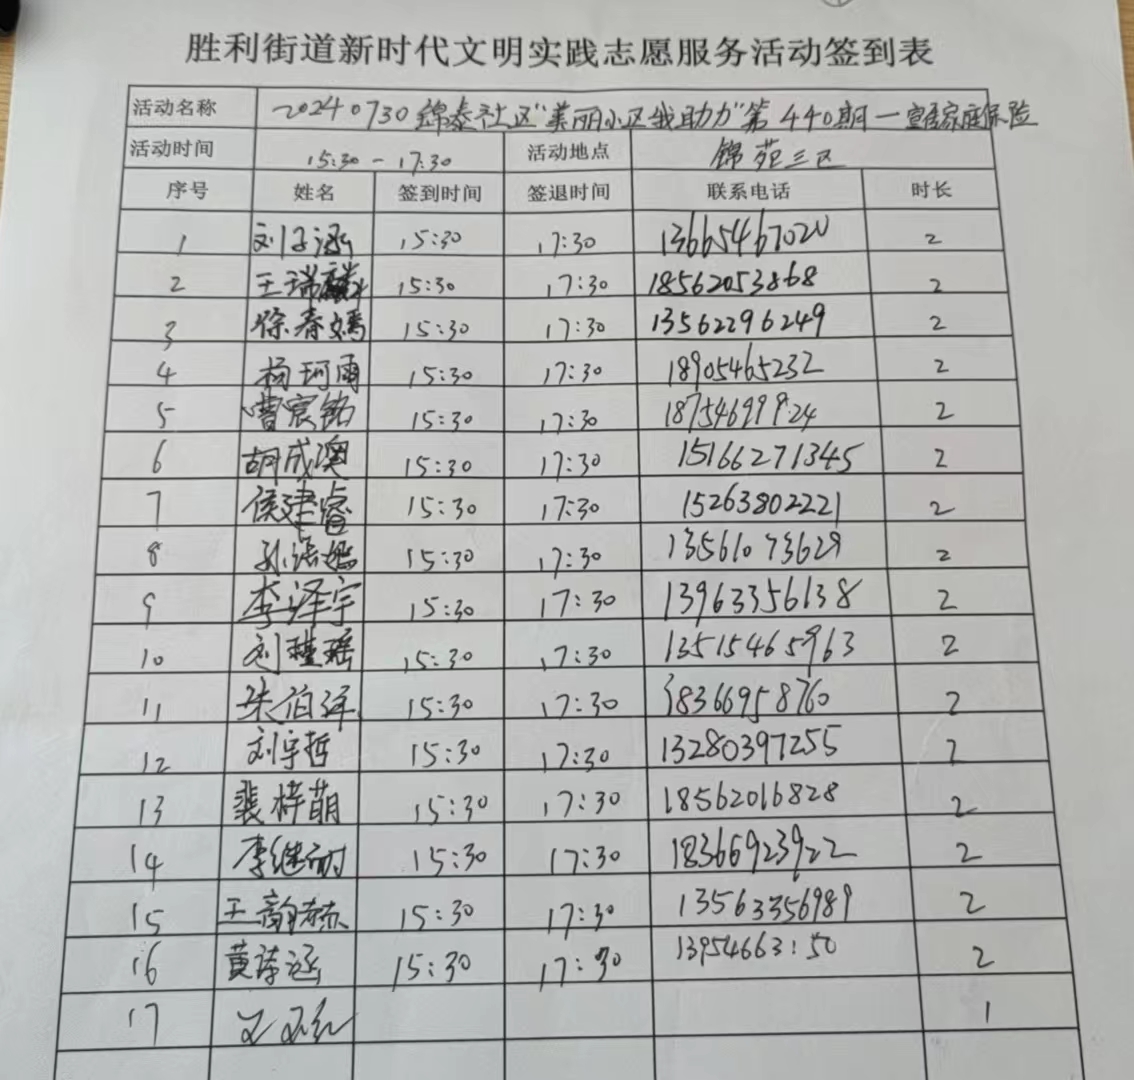 胜利街道新时代文明实践志愿服务活动签到表
活动名称 20240730锦泰社区"美丽小区我助力"第440期一 家庭保险
活动时间 15:30-17:30 活动地点 锦苑三区
序号 姓名 签到时间 签退时间 联系电话 时长
1 刘子涵 15:30 17:30 2
2 王瑞麟 15:30 17:30 18562053868 2
3 徐春嫣 15:30 17:30 13562296249 2
4 杨珂雨 15:30 17:30 18905465232 2
5 曹宸铭 15:30 17:30 2
6 胡成澳 15:30 17:30 15166271345 2
7 侯建睿 15:30 17:30 15263802221 2
8 孙 15:30 17:30 13561073629 2
9 李泽宇 15:30 17:30 13963356138 2
10 刘瑾瑶 15:30 17:30 13515465963 2
11 朱伯泽 15:30 17:30 18366958760 2
12 刘宇哲 15:30 17:30 13280397255 2
13 裴梓萌 15:30 17:30 18562016828 2
14 李继 15:30 17:30 18366923922 2
15 王韵赫 15:30 17:30 13563356989 2
16 黄诗涵 15:30 17:30 13954663150 2
17 1